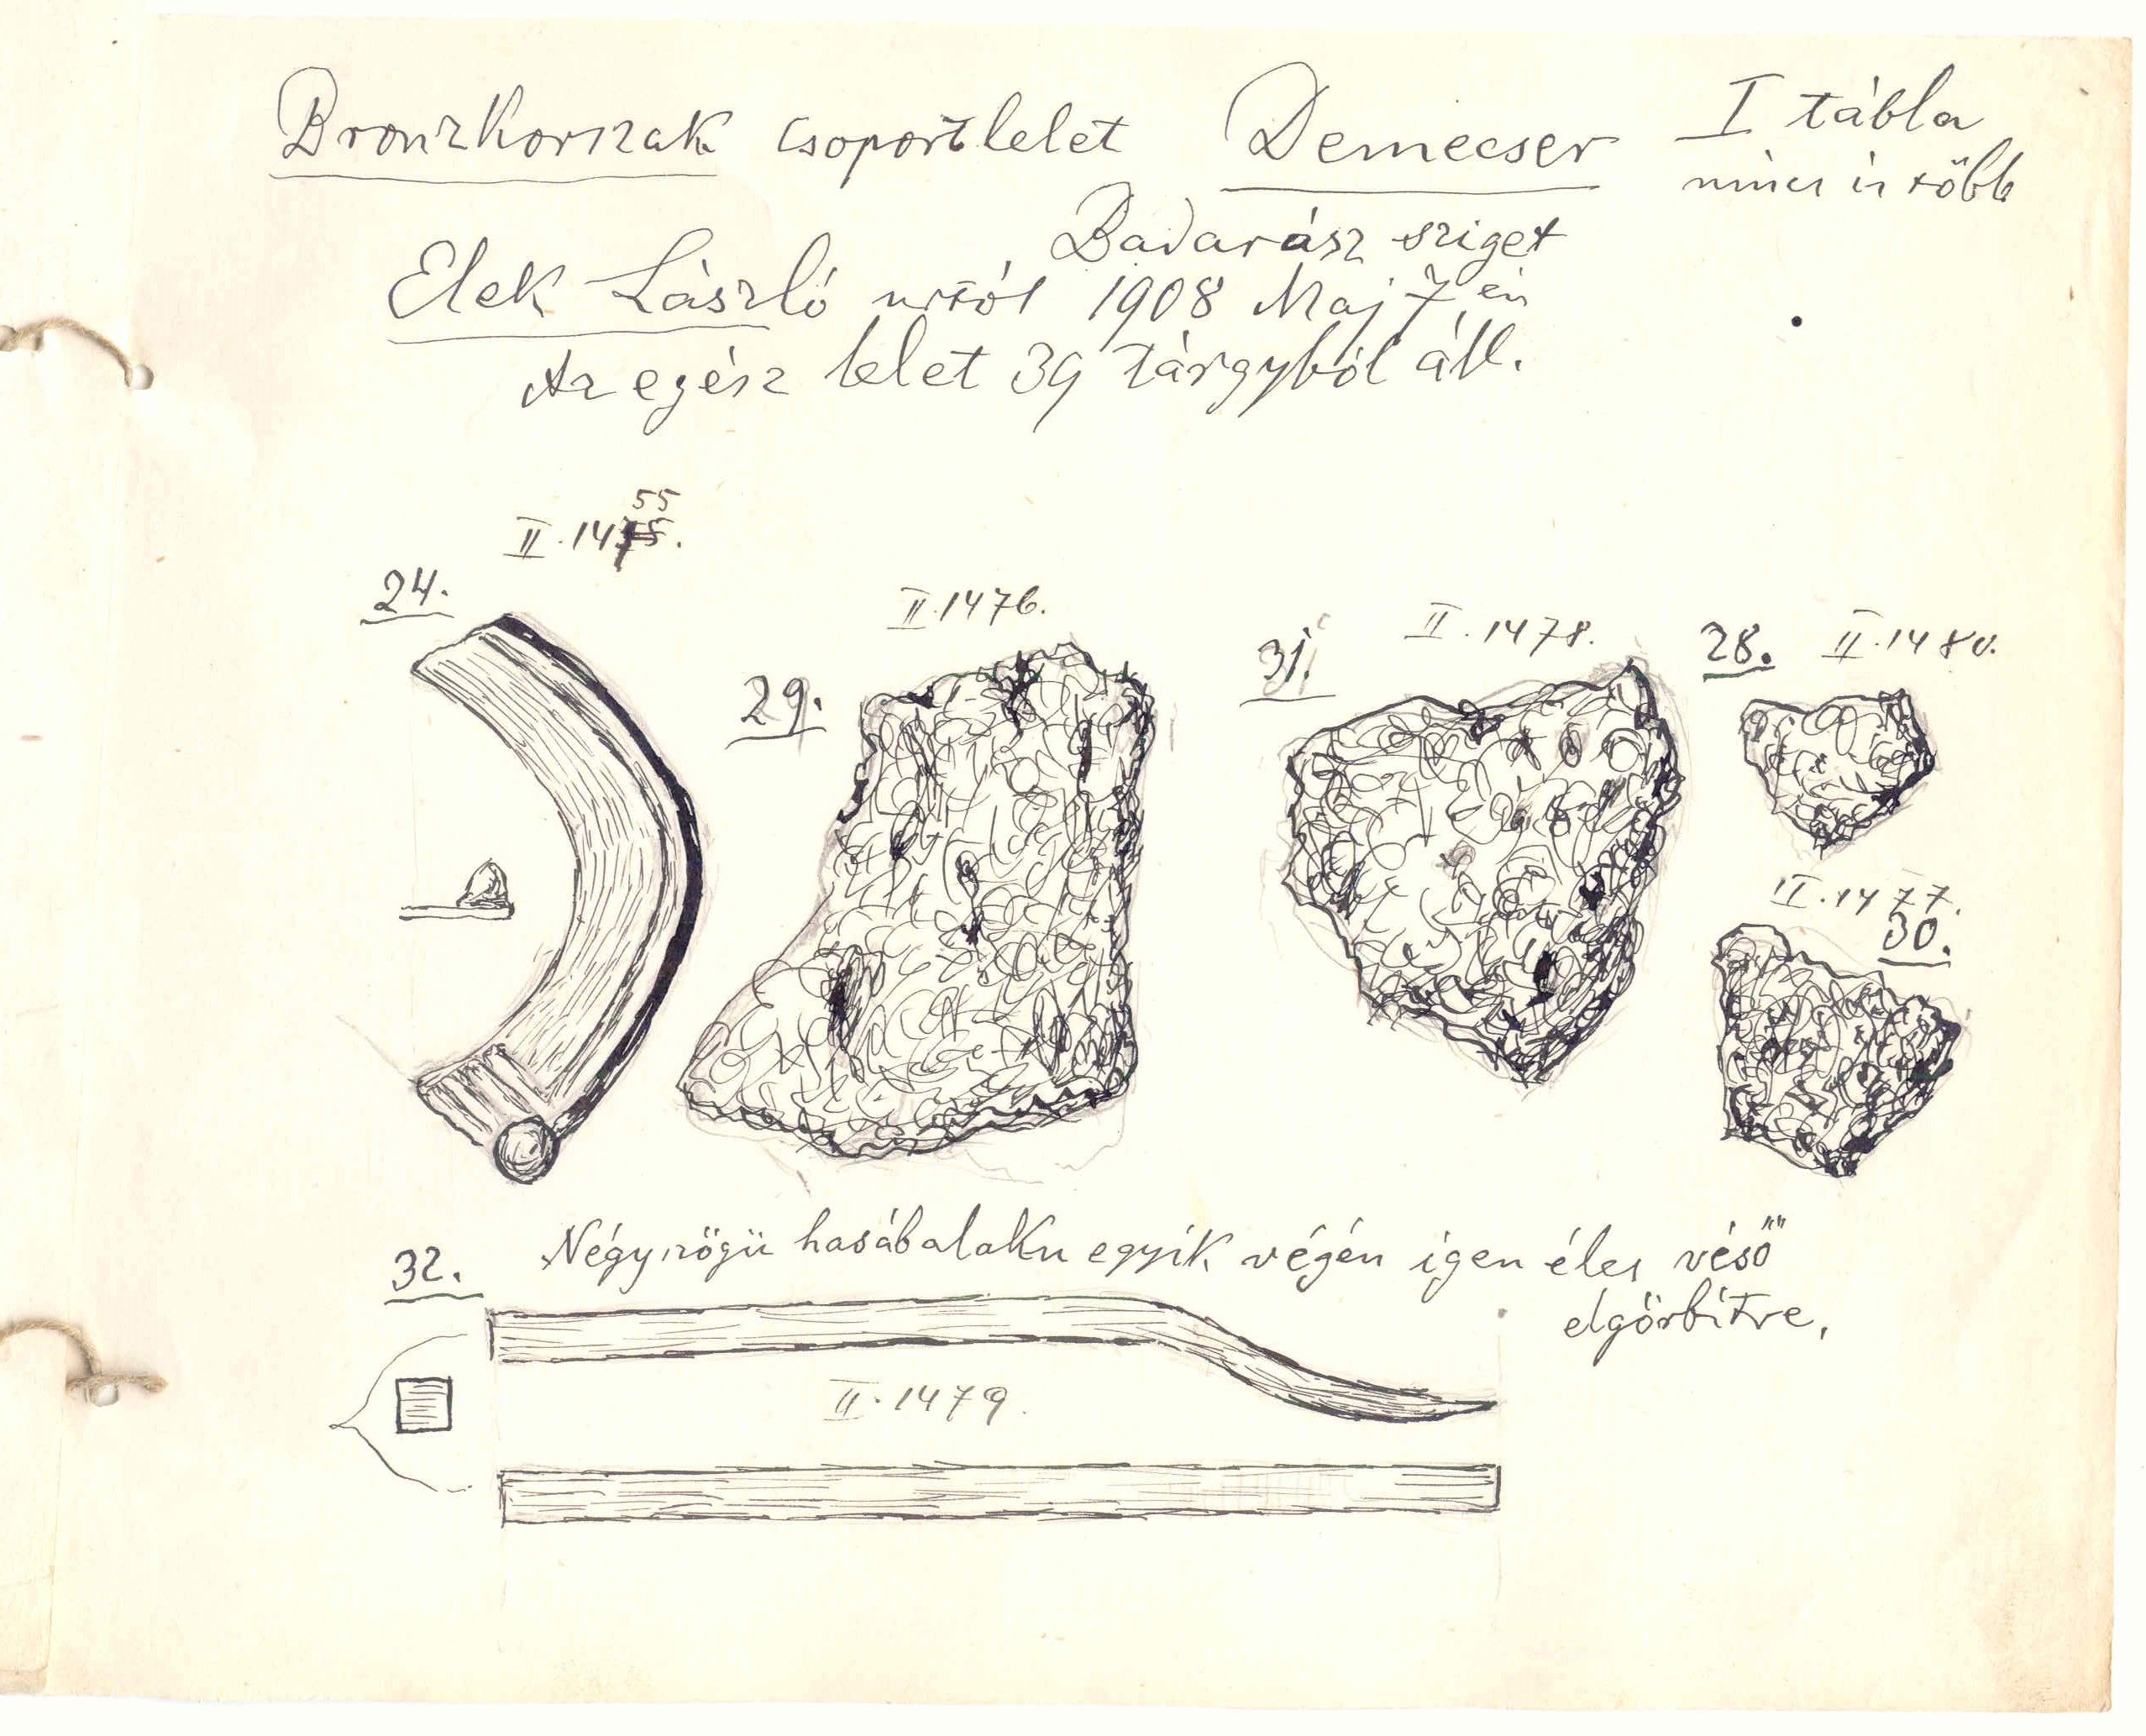 Bronzkorszak csoportlelet Demecser I tábla
nincs is több
Badarász sziget
Elek László urtól 1908 Maj 7 én
Az egész lelet 39 tárgyból áll.
55
II.1475.
24.
II.1476.
29.
31.
II.1478.
28.
II.1480.
II.1477.
30.
32.
Négyszögü hasábalaku egyik végén igen éles véső
elgörbitve,
II.1479.